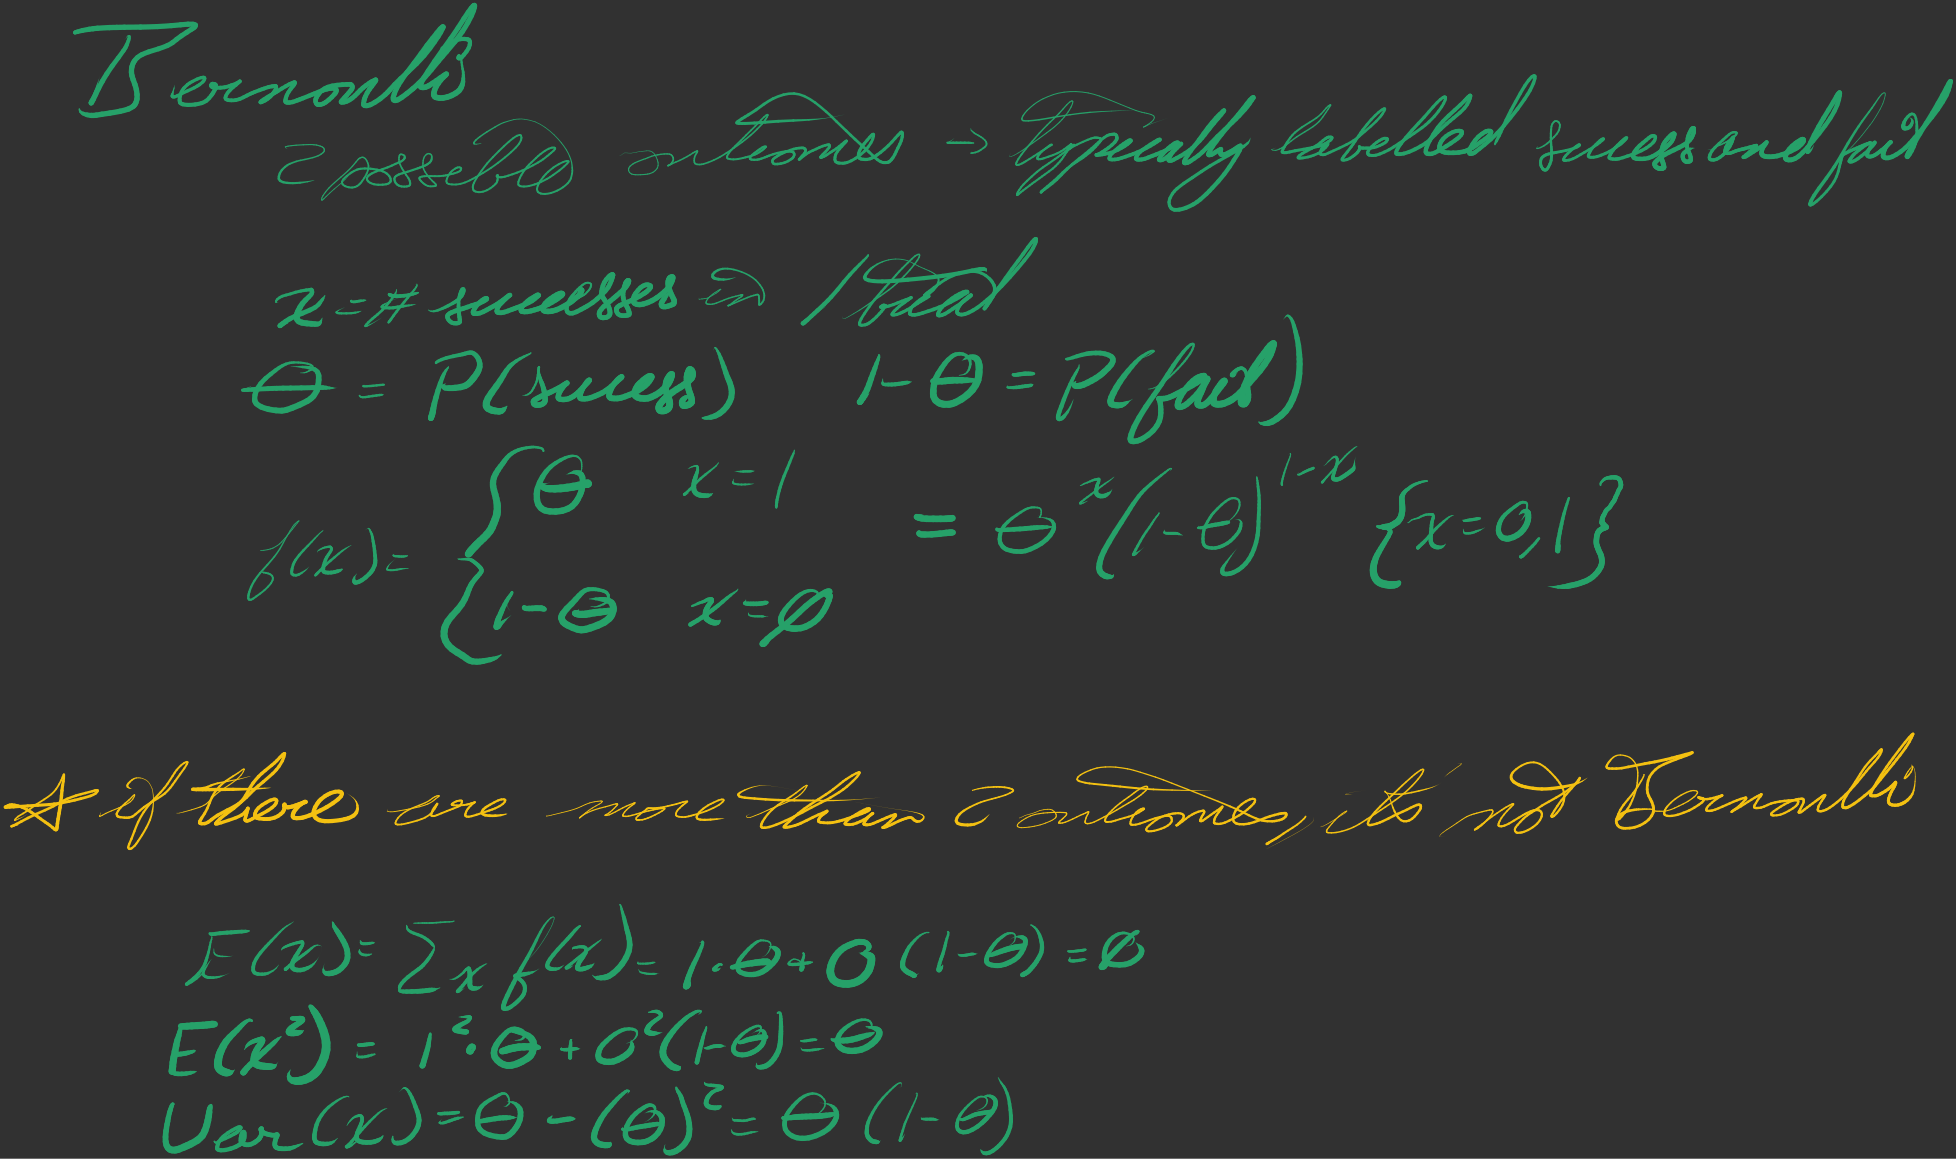 Bernoulli
2 possible outcomes → typically labelled success and fail
x = # successes in 1 trial
θ = P(success) 1-θ = P(fail)
f(x) = { θ x=1 = θ^x (1-θ)^{1-x} {x=0,1}
1-θ x=0
☆ if there are more than 2 outcomes, it's not Bernoulli
E(x) = Σ x f(x) = 1·θ + 0 (1-θ) = θ
E(x²) = 1²·θ + 0²(1-θ) = θ
Var(x) = θ - (θ)² = θ (1-θ)